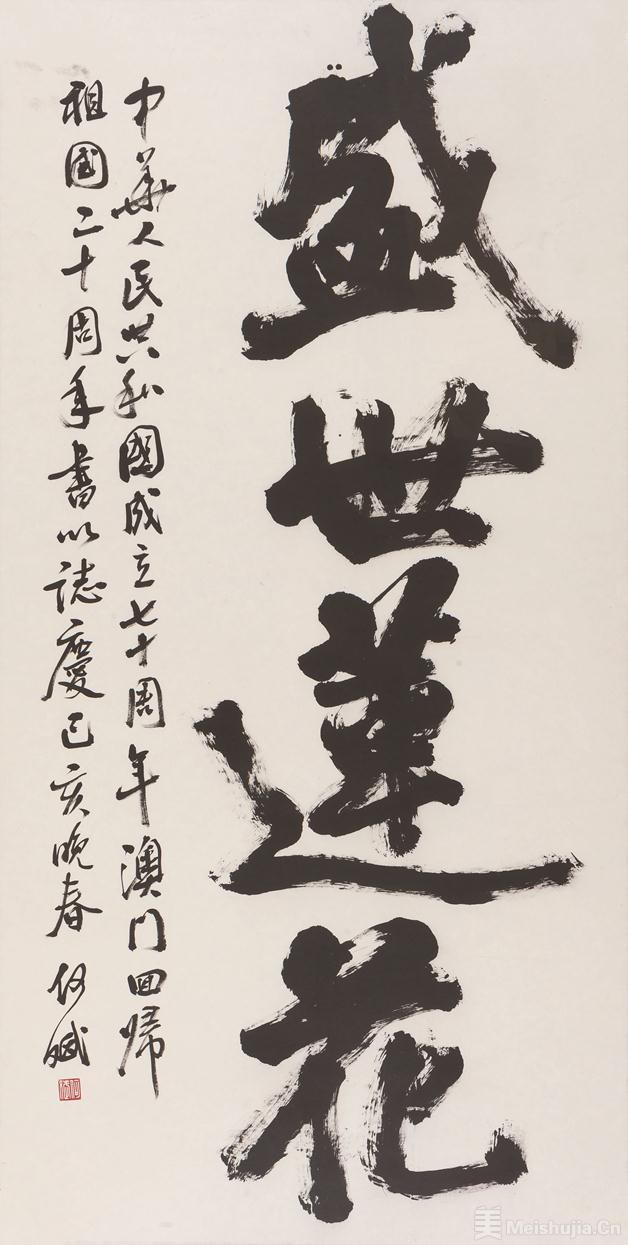 盛世蓮花
中華人民共和國成立七十周年澳门回歸
祖國二十周年書以誌慶己亥晚春
美 Meishujia.Cn